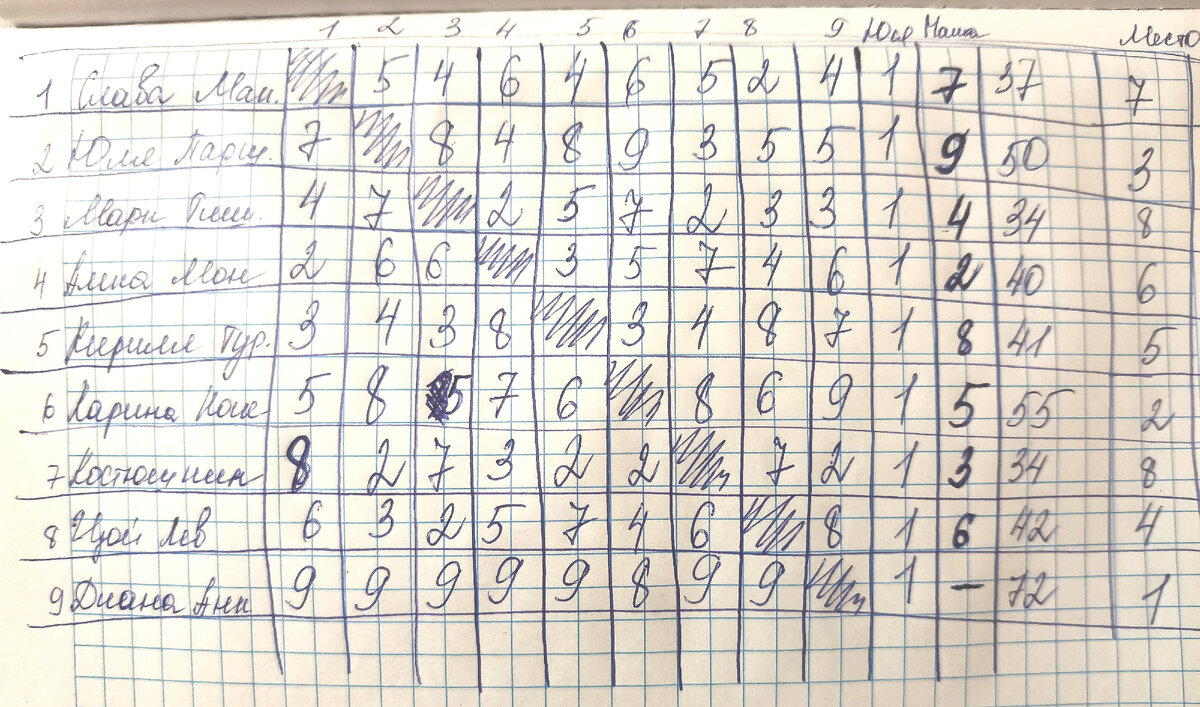 1 2 3 4 5 6 7 8 9 Юля Маша Место
1 Слава Ман. 5 4 6 4 6 5 2 4 1 7 37 7
2 Юля Парш. 7 8 4 8 9 3 5 5 1 9 50 3
3 Мари 4 7 2 5 7 2 3 3 1 4 34 8
4 Анна Мон 2 6 6 3 5 7 4 6 1 2 40 6
5 Кирилл Тур. 3 4 3 8 3 4 8 7 1 8 41 5
6 Карина 5 8 5 7 6 8 6 9 1 5 55 2
7 Костюшкин 8 2 7 3 2 2 7 2 1 3 34 8
8 Цой Лев 6 3 2 5 7 4 6 8 1 6 42 4
9 Диана Анк 9 9 9 9 9 8 9 9 1 – 72 1